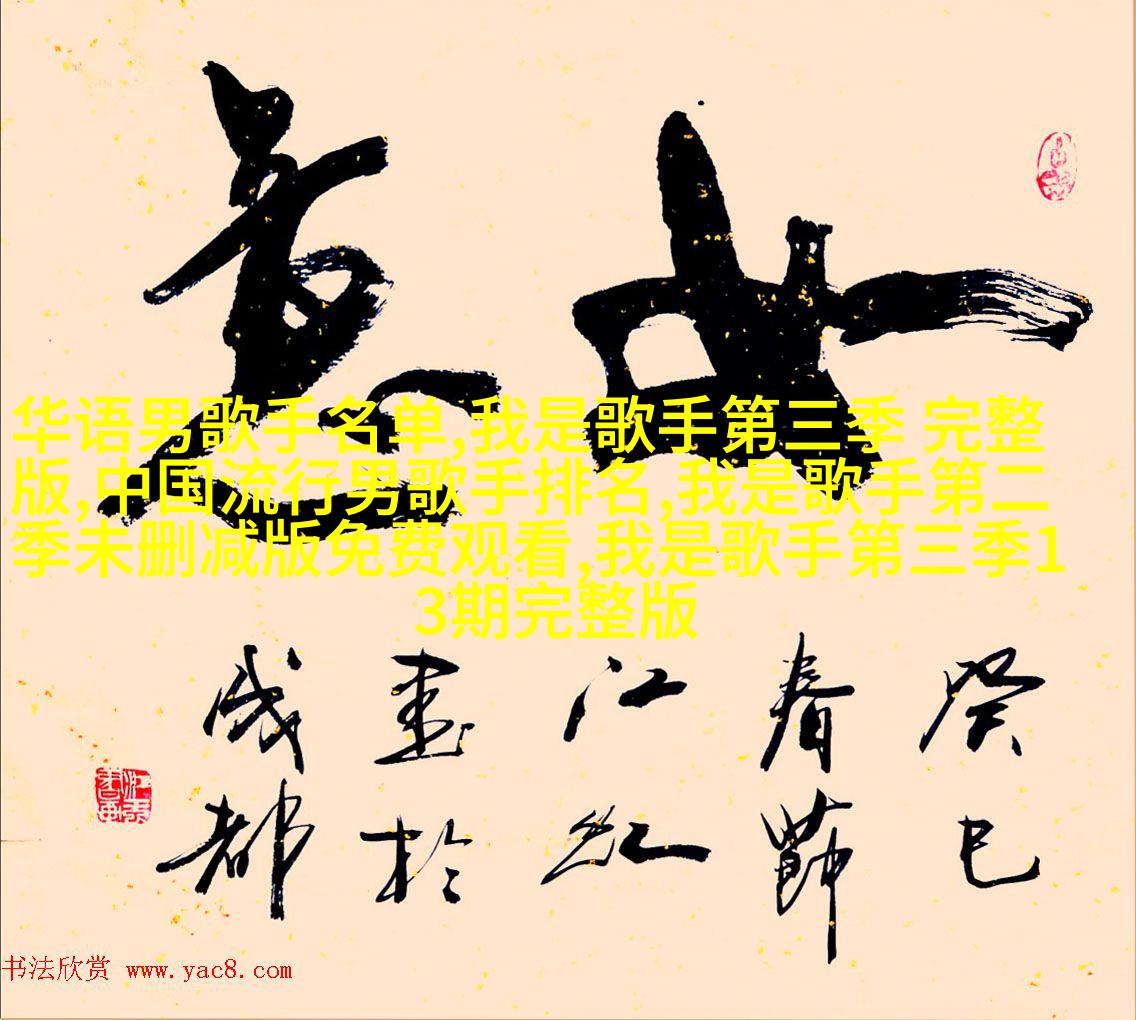 如意
华语男歌手名单,我是歌手第三季 完整
版,中国流行男歌手排名,我是歌手第二
季未删减版免费观看,我是歌手第三季1
3期完整版
癸巳
春節
江红
書於
成都
书法欣赏 www.yac8.com